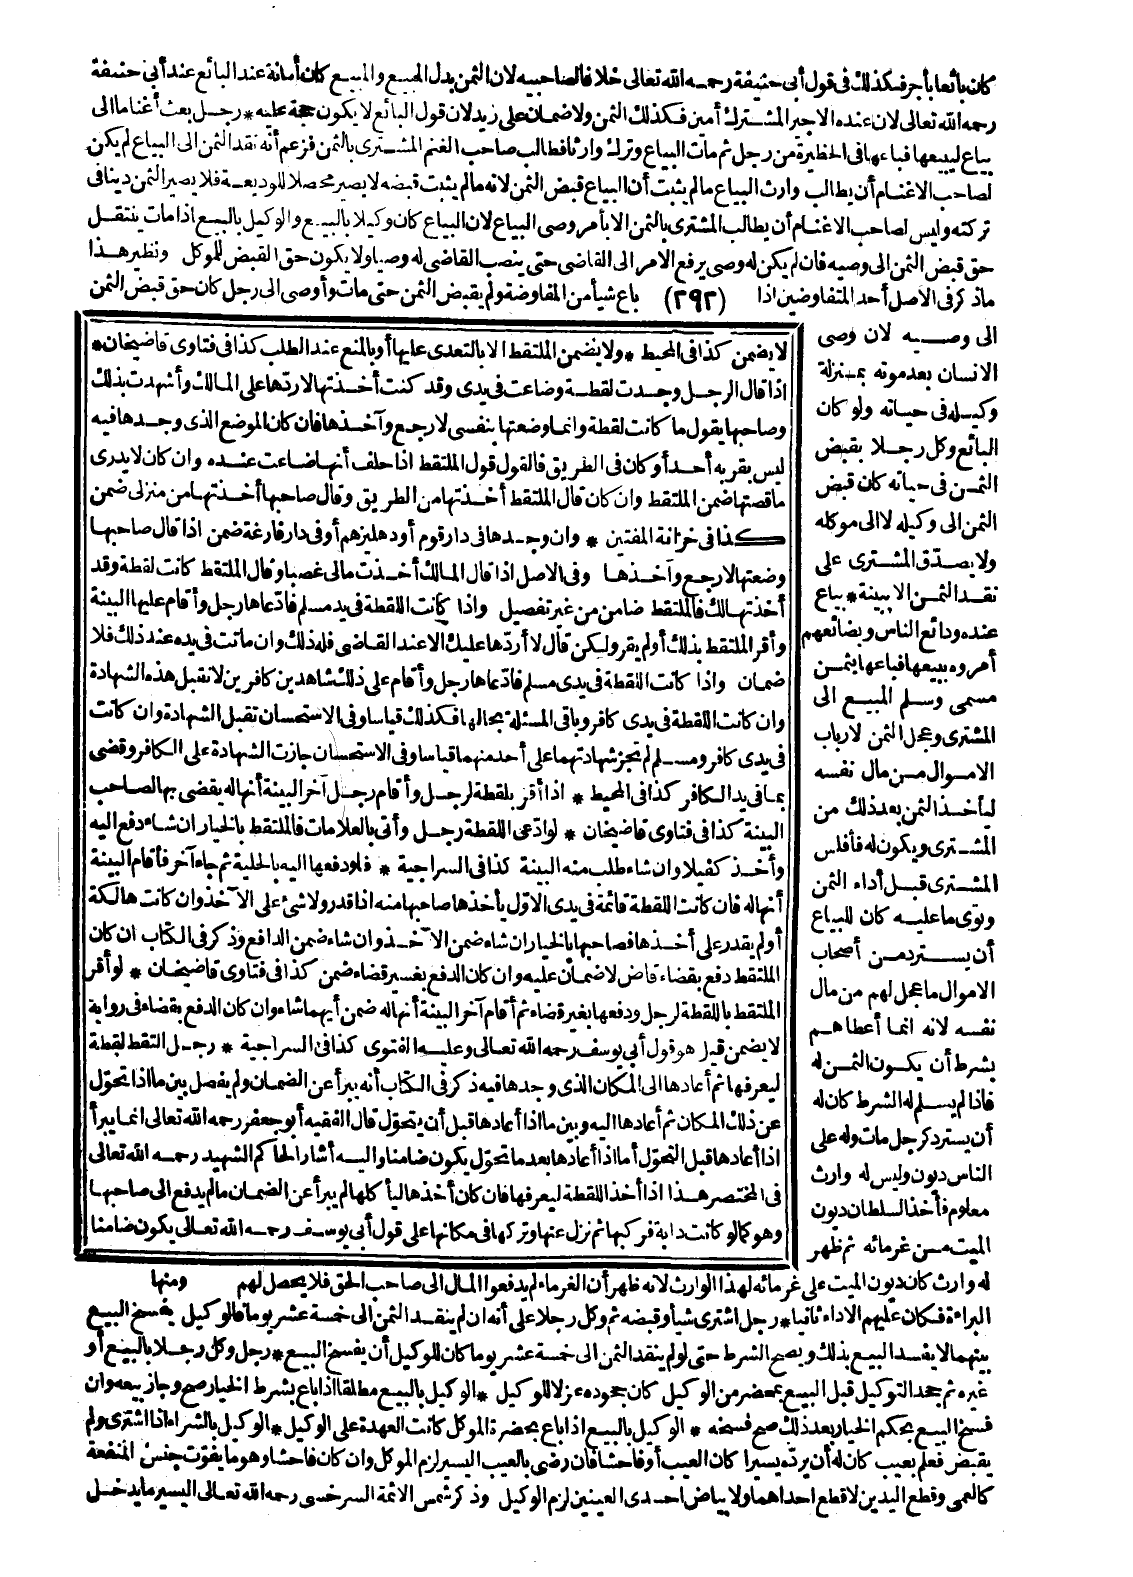 كان بائعا بأجر فكذلك فى قول أبى حنيفة رحمه الله تعالى خلافا لصاحبيه لان الثمن بدل المبيع والمبيع كان أمانة عند البائع عند أبى حنيفة
رحمه الله تعالى لان عنده الاجير المشترك أمين فكذلك الثمن ولا ضمان على زيد لان قول البائع لا يكون حجة عليه * رجل بعث أغناما الى
بياع ليبيعها فباعها فى الحظيرة من رجل ثم مات البياع وترك وارثا فطالب صاحب الغنم المشترى بالثمن فزعم أنه نقد الثمن الى البياع لم يكن
لصاحب الاغنام أن يطالب وارث البياع مالم يثبت أن البياع قبض الثمن لانه مالم يثبت قبضه لا يصير محصلا للوديعة فلا يصير الثمن دينا فى
تركته وليس لصاحب الاغنام أن يطالب المشترى بالثمن الا بأمر وصى البياع لان البياع كان وكيلا بالبيع والوكيل بالبيع اذا مات ينتقل
حق قبض الثمن الى وصيه فان لم يكن له وصى يرفع الامر الى القاضى حتى ينصب القاضى له وصيا ولا يكون حق القبض للموكل ونظير هذا
ماذكر فى الاصل أحد المتفاوضين اذا (٢٩٢) باع شيأ من المفاوضة ولم يقبض الثمن حتى مات وأوصى الى رجل كان حق قبض الثمن
الى وصيه لان وصى
الانسان بعد موته بمنزلة
وكيله فى حياته ولو كان
البائع وكل رجلا بقبض
الثمن فى حياته كان قبض
الثمن الى وكيله لا الى موكله
ولا يصدق المشترى على
نقد الثمن الا ببينة * بياع
عنده ودائع الناس وبضائعهم
أمروه ببيعها فباعها بثمن
مسمى وسلم المبيع الى
المشترى وعجل الثمن لارباب
الاموال من مال نفسه
ليأخذ الثمن بعد ذلك من
المشترى ويكون له فأفلس
المشترى قبل أداء الثمن
وتوى ما عليه كان للبياع
أن يسترد من أصحاب
الاموال ما عجل لهم من مال
نفسه لانه انما أعطاهم
بشرط أن يكون الثمن له
فاذا لم يسلم له الشرط كان له
أن يسترد كرجل مات وله على
الناس ديون وليس له وارث
معلوم فأخذ السلطان ديون
الميت من غرمائه ثم ظهر
له وارث كان ديون الميت على غرمائه لهذا الوارث لانه ظهر أن الغرماء لم يدفعوا المال الى صاحب الحق فلا يحصل لهم ومنها
البراءة فكان عليهم الاداء ثانيا * رجل اشترى شيأ وقبضه ثم وكل رجلا على أنه ان لم ينقد الثمن الى خمسة عشر يوما فالوكيل يفسخ البيع
بينهما لا يفسد البيع بذلك ويصح الشرط حتى لو لم ينقد الثمن الى خمسة عشر يوما كان للوكيل أن يفسخ البيع * رجل وكل رجلا بالبيع أو
غيره ثم جحد التوكيل قبل البيع بمحضر من الوكيل كان جحوده عزلا للوكيل * الوكيل بالبيع مطلقا اذا باع بشرط الخيار صح وجاز بيعه وان
فسخ البيع بحكم الخيار بعد ذلك صح فسخه * الوكيل بالبيع اذا باع بحضرة الموكل كانت العهدة على الوكيل * الوكيل بالشراء اذا اشترى ولم
يقبض فعلم بعيب كان له أن يرده يسيرا كان العيب أو فاحشا فان رضى بالعيب اليسير لزم الموكل وان كان فاحشا وهو ما يفوت جنس المنفعة
كالعمى وقطع اليدين لا قطع احداهما ولا بياض احدى العينين لزم الوكيل وذكر شمس الائمة السرخسى رحمه الله تعالى اليسير ما يدخل
لا يضمن كذا فى المحيط * ولا يضمن الملتقط الا بالتعدى عليها أو بالمنع عند الطلب كذا فى فتاوى قاضيخان *
اذا قال الرجل وجدت لقطة وضاعت فى يدى وقد كنت أخذتها لاردها على المالك وأشهدت بذلك
وصاحبها يقول ما كانت لقطة وانما وضعتها بنفسى لارجع وآخذها فان كان الموضع الذى وجدها فيه
ليس بقربه أحد أو كان فى الطريق فالقول قول الملتقط اذا حلف أنها ضاعت عنده وان كان لا يدرى
ما قصتها ضمن الملتقط وان كان قال الملتقط أخذتها من الطريق وقال صاحبها أخذتها من منزلى ضمن
كذا فى خزانة المفتين * وان وجدها فى دار قوم أو دهليزهم أو فى دار فارغة ضمن اذا قال صاحبها
وضعتها لارجع وآخذها وفى الاصل اذا قال المالك أخذت مالى غصبا وقال الملتقط كانت لقطة وقد
أخذتها لك فالملتقط ضامن من غير تفصيل واذا كانت اللقطة فى يد مسلم فادعاها رجل وأقام عليها البينة
وأقر الملتقط بذلك أو لم يقر ولكن قال لا أردها عليك الا عند القاضى فله ذلك وان ماتت فى يده عند ذلك فلا
ضمان واذا كانت اللقطة فى يدى مسلم فادعاها رجل وأقام على ذلك شاهدين كافرين لا تقبل هذه الشهادة
وان كانت اللقطة فى يدى كافر وباقى المسئلة بحالها فكذلك قياسا وفى الاستحسان تقبل الشهادة وان كانت
فى يدى كافر ومسلم لم تجز شهادتهما على أحد منهما قياسا وفى الاستحسان جازت الشهادة على الكافر وقضى
بما فى يد الكافر كذا فى المحيط * اذا أقر بلقطة لرجل وأقام رجل آخر البينة أنها له يقضى بها لصاحب
البينة كذا فى فتاوى قاضيخان * لو ادعى اللقطة رجل وأتى بالعلامات فالملتقط بالخيار ان شاء دفع اليه
وأخذ كفيلا وان شاء طلب منه البينة كذا فى السراجية * فلو دفعها اليه بالحلية ثم جاء آخر فأقام البينة
أنها له فان كانت اللقطة قائمة فى يدى الاول يأخذها صاحبها منه اذا قدر ولا شئ على الآخذ وان كانت هالكة
أو لم يقدر على أخذها فصاحبها بالخيار ان شاء ضمن الآخذ وان شاء ضمن الدافع وذكر فى الكتاب ان كان
الملتقط دفع بقضاء قاض لا ضمان عليه وان كان الدفع بغير قضاء ضمن كذا فى فتاوى قاضيخان * لو أقر
الملتقط باللقطة لرجل ودفعها بغير قضاء ثم أقام آخر البينة أنها له ضمن أيهما شاء وان كان الدفع بقضاء فى رواية
لا يضمن قيل هو قول أبى يوسف رحمه الله تعالى وعليه الفتوى كذا فى السراجية * رجل التقط لقطة
ليعرفها ثم أعادها الى المكان الذى وجدها فيه ذكر فى الكتاب أنه يبرأ عن الضمان ولم يفصل بين ما اذا تحول
عن ذلك المكان ثم أعادها اليه وبين ما اذا أعادها قبل أن يتحول قال الفقيه أبو جعفر رحمه الله تعالى انما يبرأ
اذا أعادها قبل التحول أما اذا أعادها بعد ما تحول يكون ضامنا واليه أشار الحاكم الشهيد رحمه الله تعالى
فى المختصر هذا اذا أخذ اللقطة ليعرفها فان كان أخذها ليأكلها لم يبرأ عن الضمان مالم يدفع الى صاحبها
وهو كما لو كانت دابة فركبها ثم نزل عنها وتركها فى مكانها على قول أبى يوسف رحمه الله تعالى يكون ضامنا